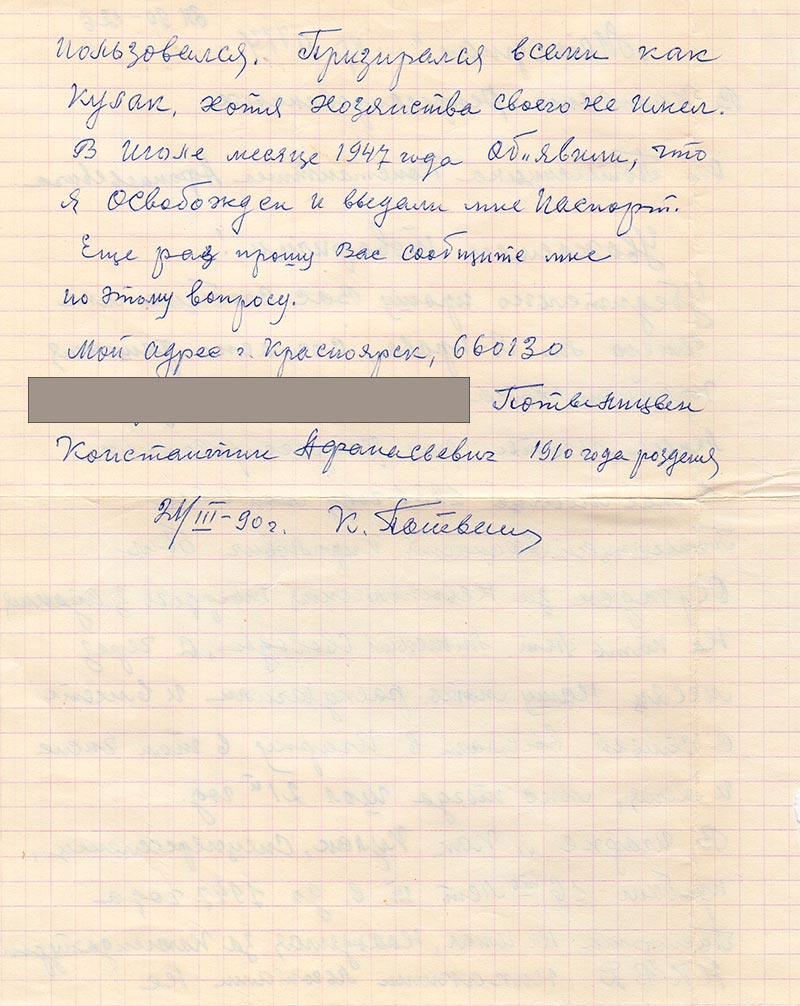 пользовался. Призирался всеми как
Кулак, хотя хозяйства своего не имел.
В Июле месяце 1947 года Об"явили, что
я освобожден и выдали мне паспорт.
Еще раз прошу Вас сообщите мне
по этому вопросу.
Мой адрес г. Красноярск, 660130
Константин Афанасьевич 1910 года роздения
21/III-90 г. К.